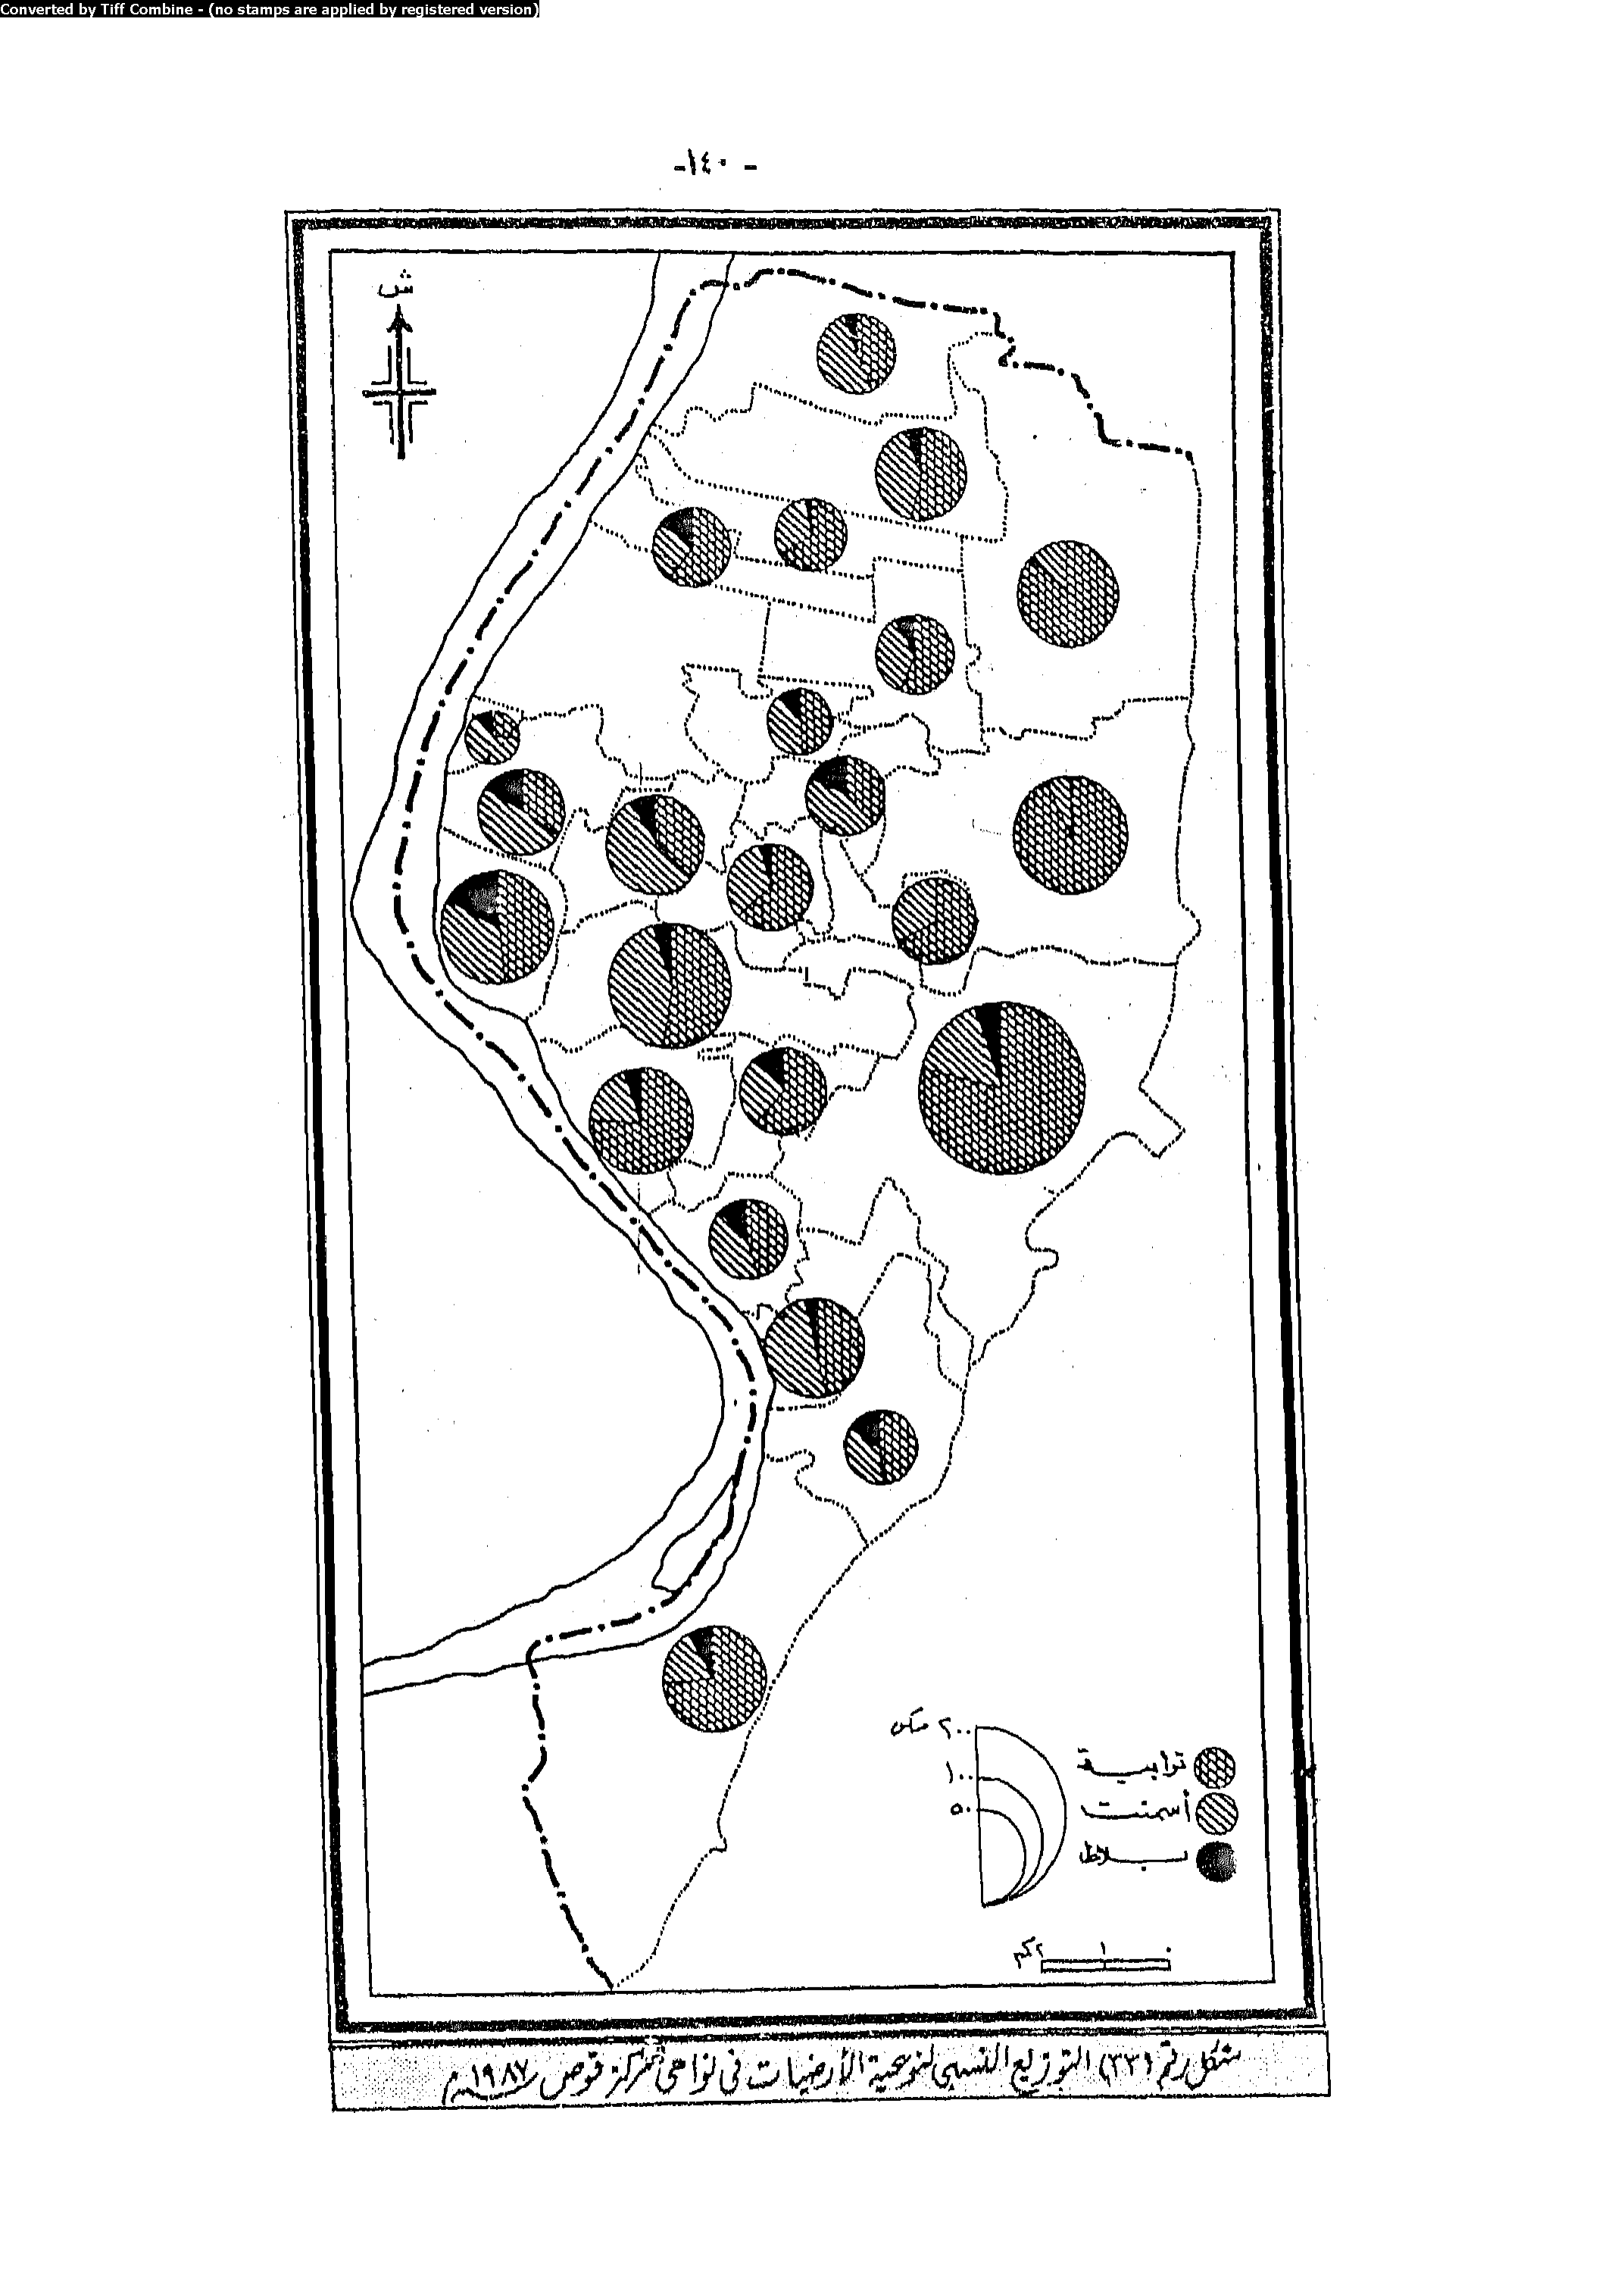 Converted by Tiff Combine - (no stamps are applied by registered version)
- ١٤٠ -
ش
٢٠٠ مسكن
١٠٠
٥٠
ترابيــة
أسمنت
بــلاط
٢كم ١ ٠
شكل رقم (٣٣) التوزيع النسبى لنوعية الأرضيات فى نواحى مركز قوص سنة ١٩٨٧م